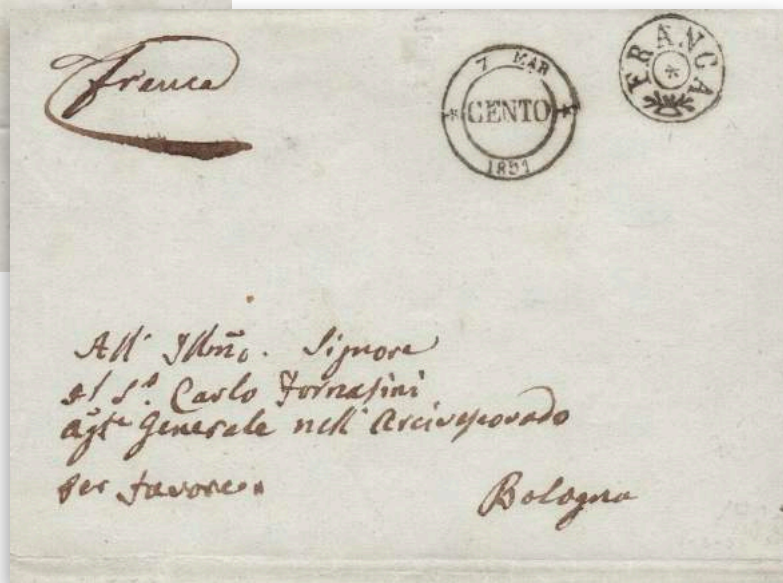 franca
7 MAR
* CENTO *
1851
FRANCA
All' Illmo. Signore
Il Sr. Carlo Fornasini
Agte Generale nell' Arcivescovado
per favore
Bologna